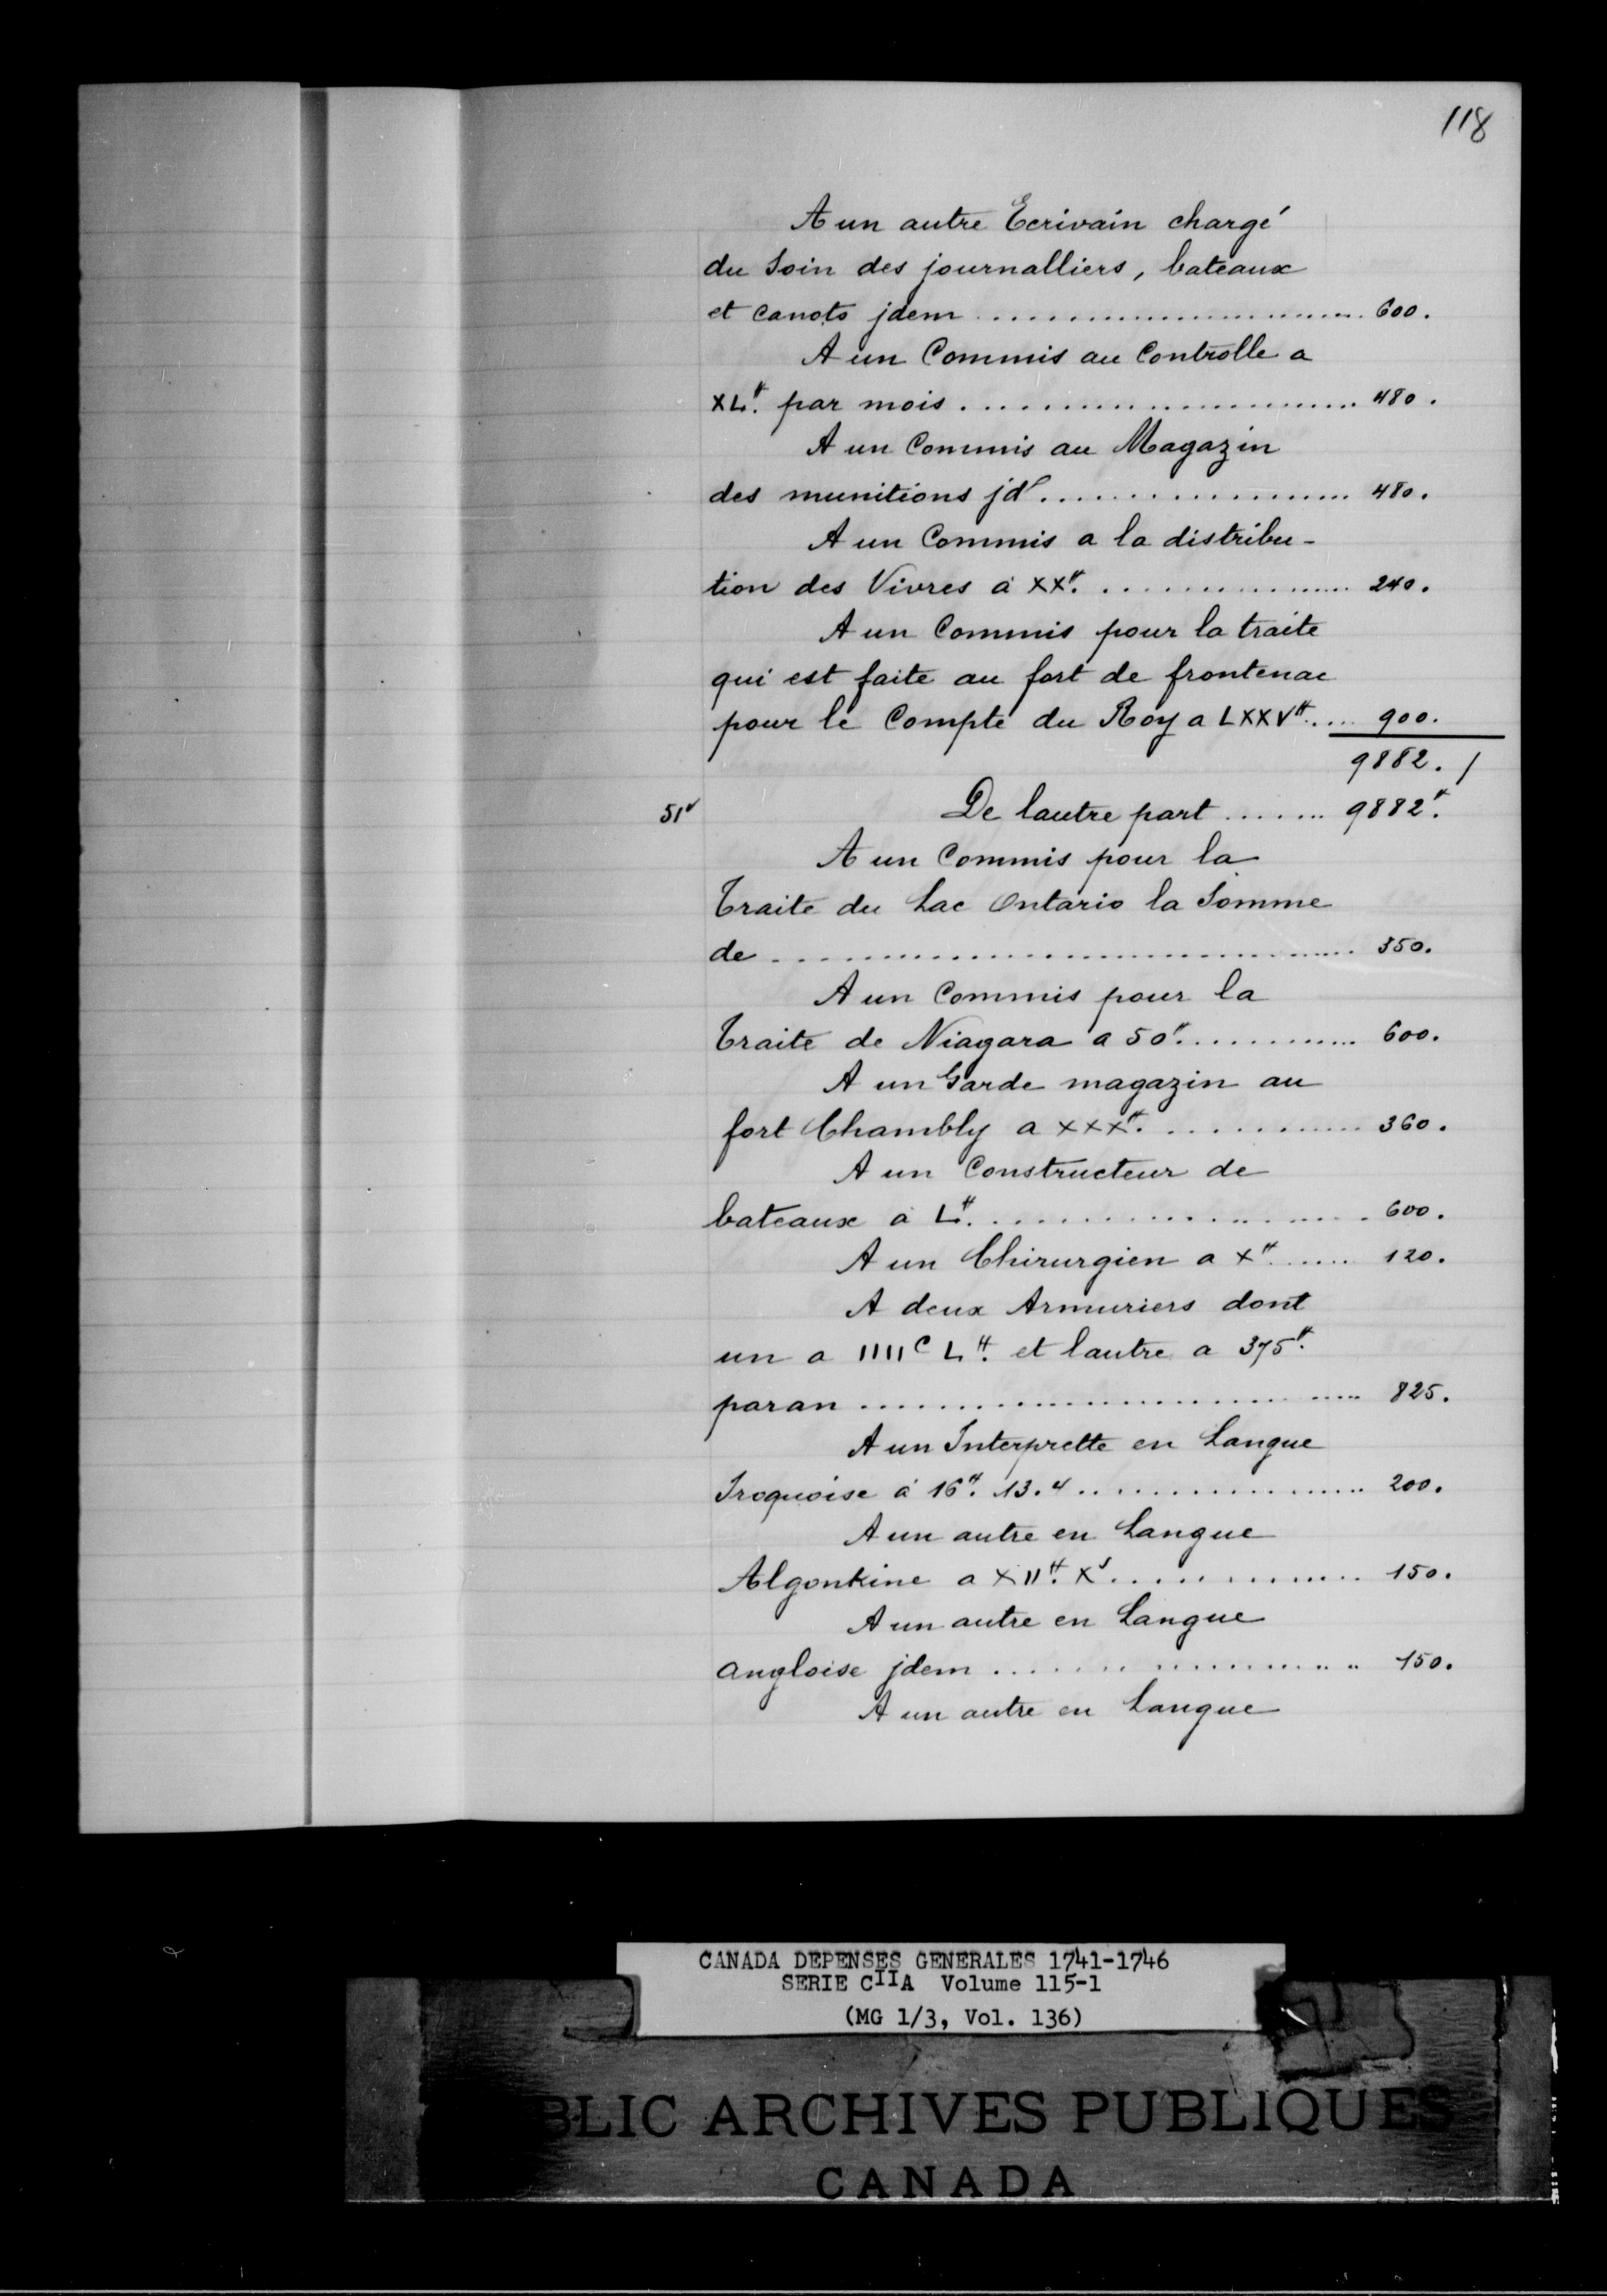 118
A un autre Ecrivain chargé
du Soin des journalliers, bateaux
et Canots jdem ........................ 600.
A un Commis au Controlle a
XL# par mois ........................ 480.
A un Commis au Magazin
des munitions jd ................... 480.
A un Commis a la distribu-
tion des Vivres à XX# ................. 240.
A un Commis pour la traite
qui est faite au fort de frontenac
pour le Compte du Roy a LXXV# .... 900.
9882. /
51v De lautre part ....... 9882#
A un Commis pour la
Traite du Lac Ontario la Somme
de ................................... 350.
A un Commis pour la
Traite de Niagara a 50# ............ 600.
A un Garde magazin au
fort Chambly a XXX# ............. 360.
A un Constructeur de
bateaux a L# ....................... 600.
A un Chirurgien a X# ...... 120.
A deux Armuriers dont
un a IIIIc L# et lautre a 375#
par an .............................. 825.
A un Interprette en Langue
Iroquoise à 16# 13. 4 .................. 200.
A un autre en Langue
Algonkine a XII# Xs ............... 150.
A un autre en Langue
angloise jdem ...................... 150.
A un autre en Langue
CANADA DEPENSES GENERALES 1741-1746
SERIE CIIA Volume 115-1
(MG 1/3, Vol. 136)
BLIC ARCHIVES PUBLIQUES
CANADA